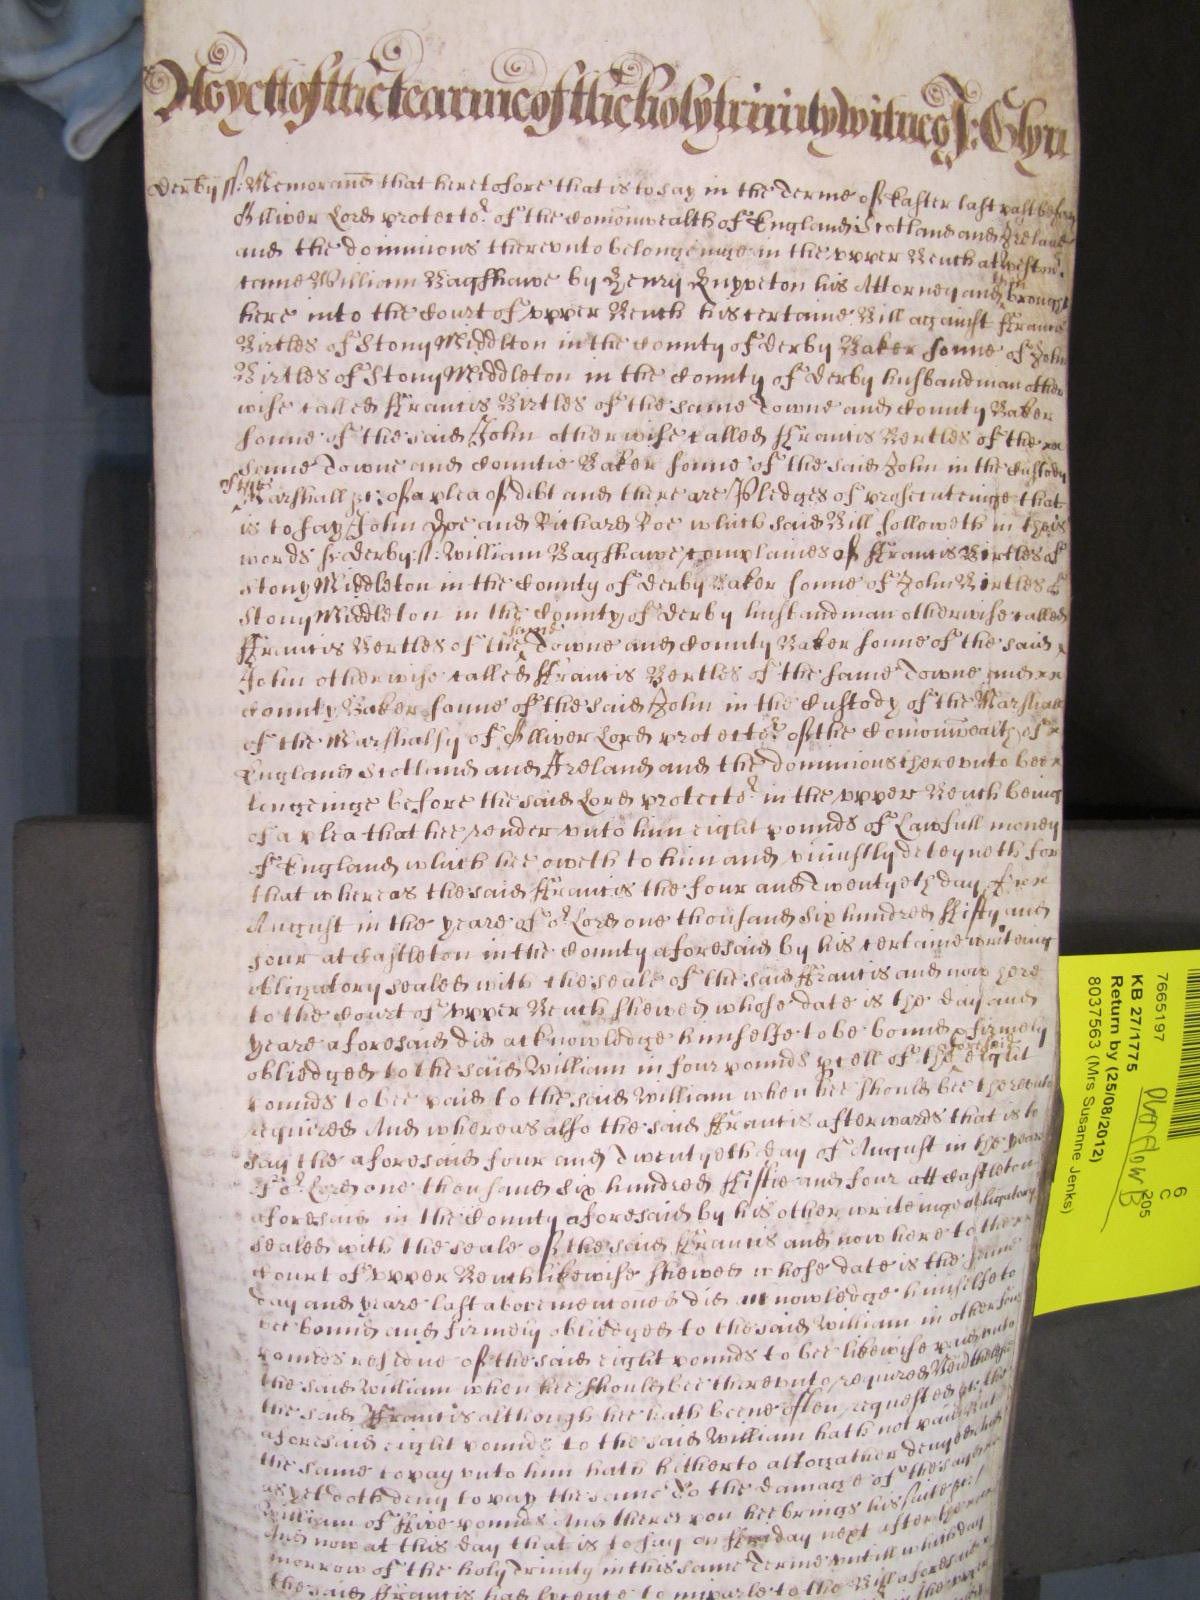 As yett of the tearme of the holy trinity witnes J: Glyn
Derby ss: Memorand that heretofore that is to say in the Terme of Easter last past before
Olliver Lord protector of the Comonwealth of England Scotland and Ireland
and the dominions therevnto belongeinge in the vpper Bench at Westmr
came William Bagshawe by Henry Knyveton his Attorney and brought
here into the Court of vpper Bench his certaine Bill against Francis
Birtles of Stony Middlton in the County of Derby Baker sonne of John
Birtles of Stony Middleton in the County of Derby husbandman other
wise called Francis Birtles of the same Towne and County Baker
sonne of the said John otherwise called Francis Bertles of the
same Towne and Countie Baker sonne of the said John in the Custody
of the Marshall &c: of a plea of debt and there are Pledges of prosecuteinge that
is to say John Doe and Richard Roe which said Bill followeth in theis
words ss: Derby ss: William Bagshawe complaines of Francis Birtles of
Stony Middleton in the County of Derby Baker sonne of John Birtles of
Stony Middleton in the County of Derby husbandman otherwise called
Francis Bertles of the same Towne and County Baker sonne of the said
John otherwise called Francis Bertles of the same Towne and
County Baker sonne of the said John in the Custody of the Marshall
of the Marshalsy of Olliver Lord protector of the Comonwealth of
England Scotland and Ireland and the dominions therevnto bee
longeinge before the said Lord protector in the vpper Bench being
of a plea that hee render vnto him eight pounds of Lawfull money
of England which hee oweth to him and vniustly deteyneth for
that whereas the said Francis the four and Twentyeth day of
August in the yeare of or Lord one thousand six hundred Fifty and
four at Castleton in the County aforesaid by his certaine writeing
obligatory sealed with the seale of the said Francis and now here
to the Court of vpper Bench shewed whose date is the day and
yeare aforesaid did acknowledge himselfe to be bound & firmely
obliedged to the said William in four pounds pcell of the aforesaid eight
pounds to bee paid to the said William when hee should bee therevnto
required And whereas also the said Francis afterwards that is to
say the aforesaid four and Twentyeth day of August in the yeare
of or Lord one thousand six hundred Fiftie and four att Castleton
aforesaid in the County aforesaid by his other writeinge obligatory
sealed with the seale of the said Francis and now here to the
Court of vpper Bench likewise shewed whose date is the same
day and yeare last abovementoned did acknowledge himselfe to
bee bound and firmely obliedged to the said William in other four
pounds residue of the said eight pounds to bee likewise paid vnto
the said William when hee should bee therevnto required Neverthelesse
the said Francis although hee hath beene often requested &c: the
aforesaid eight pounds to the said William hath not paid But
the same to pay vnto him hath hitherto altogather denyed and
as yet doth deny to pay the same To the damage of the said
William of Five pounds And therevpon hee brings his suite &c:
And now at this day that is to say on Friday next after the
morrow of the holy Trinity in this same Terme vntill which day
the said Francis had licence to imparle to the Bill aforesaid
7665197
KB 27/1775
Return by (25/08/2012)
8037563 (Mrs Susanne Jenks)
205
6
C